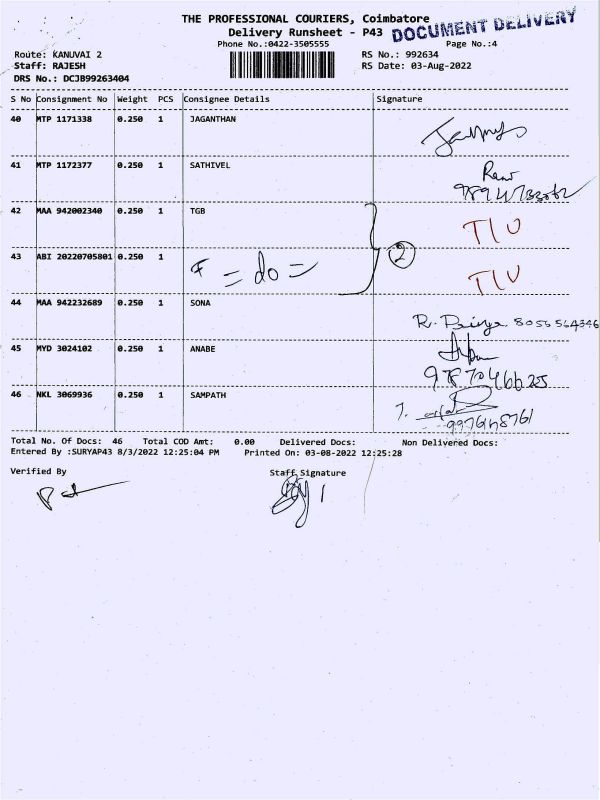 THE PROFESSIONAL COURIERS, Coimbatore
Delivery Runsheet - P43 DOCUMENT DELIVERY
Phone No.:0422-3505555 Page No.:4
Route: KANUVAI 2 RS No.: 992634
Staff: RAJESH RS Date: 03-Aug-2022
DRS No.: DCJB99263404
S No Consignment No Weight PCS Consignee Details Signature
40 MTP 1171338 0.250 1 JAGANTHAN
41 MTP 1172377 0.250 1 SATHIVEL
42 MAA 942002340 0.250 1 TGB T/U
43 ABI 20220705801 0.250 1 = do = 2 T/U
44 MAA 942232689 0.250 1 SONA R. Priya 8056564346
45 MYD 3024102 0.250 1 ANABE
9787046625
46 NKL 3069936 0.250 1 SAMPATH
Total No. Of Docs: 46 Total COD Amt: 0.00 Delivered Docs: Non Delivered Docs:
Entered By :SURYAP43 8/3/2022 12:25:04 PM Printed On: 03-08-2022 12:25:28
Verified By Staff Signature